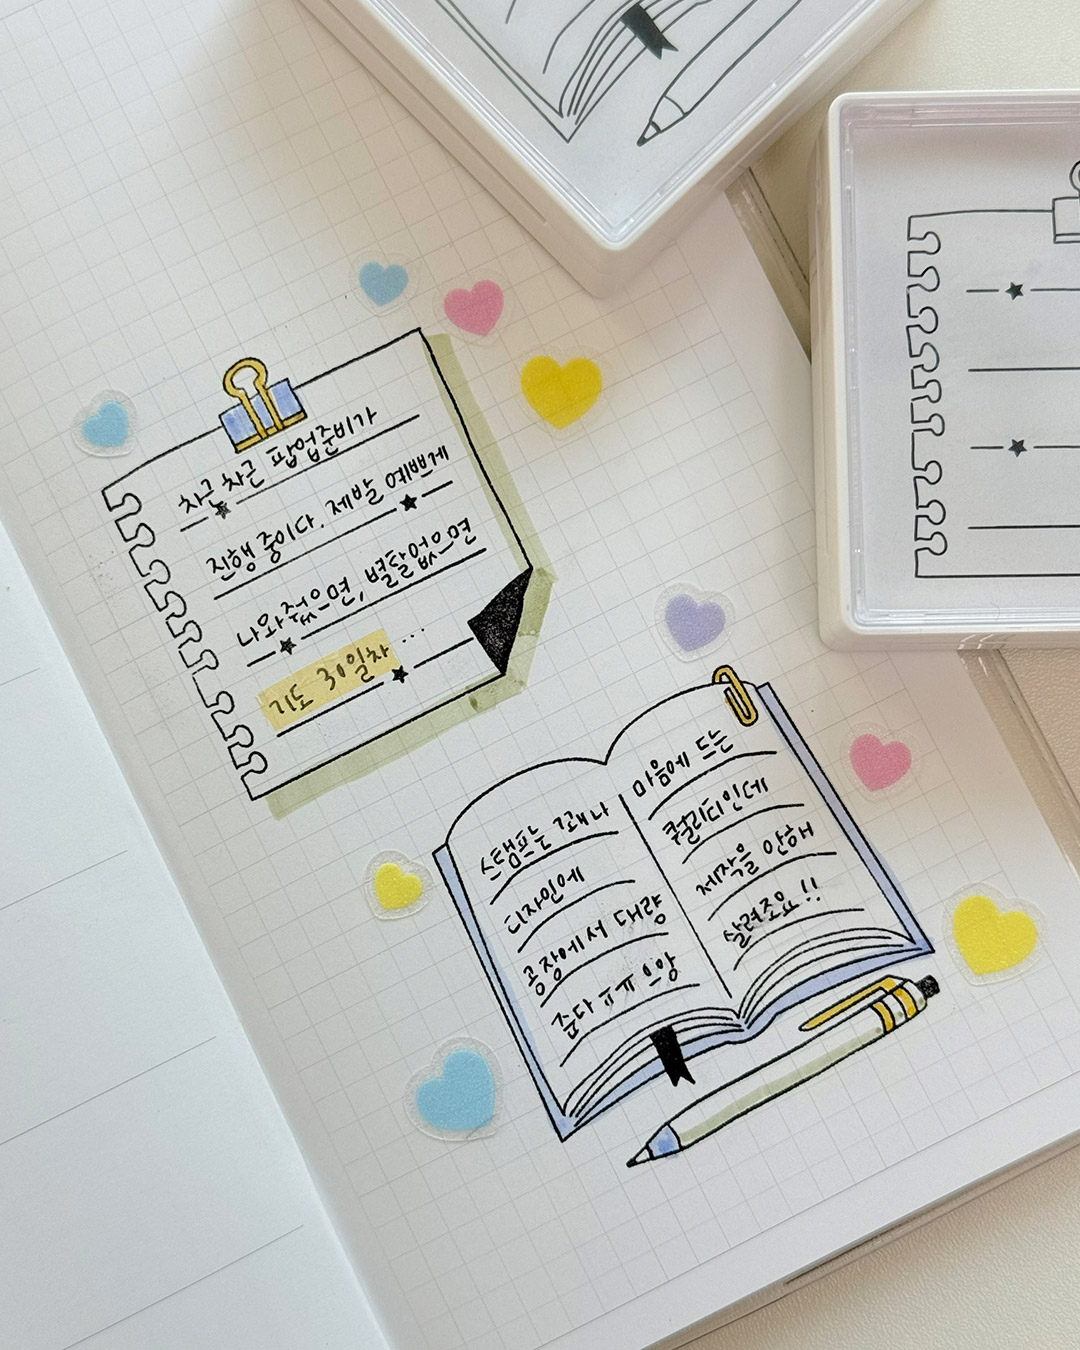 차근차근 팝업준비가
진행 중이다. 제발 예쁘게
나와줬으면, 별탈없으면
기도 30일차 ...
스탬프는 꽤나
디자인에
공장에서 대량
준다 ㅠㅠ 으앙
마음에 드는
퀄리티인데
제작을 안해
살려주요!!